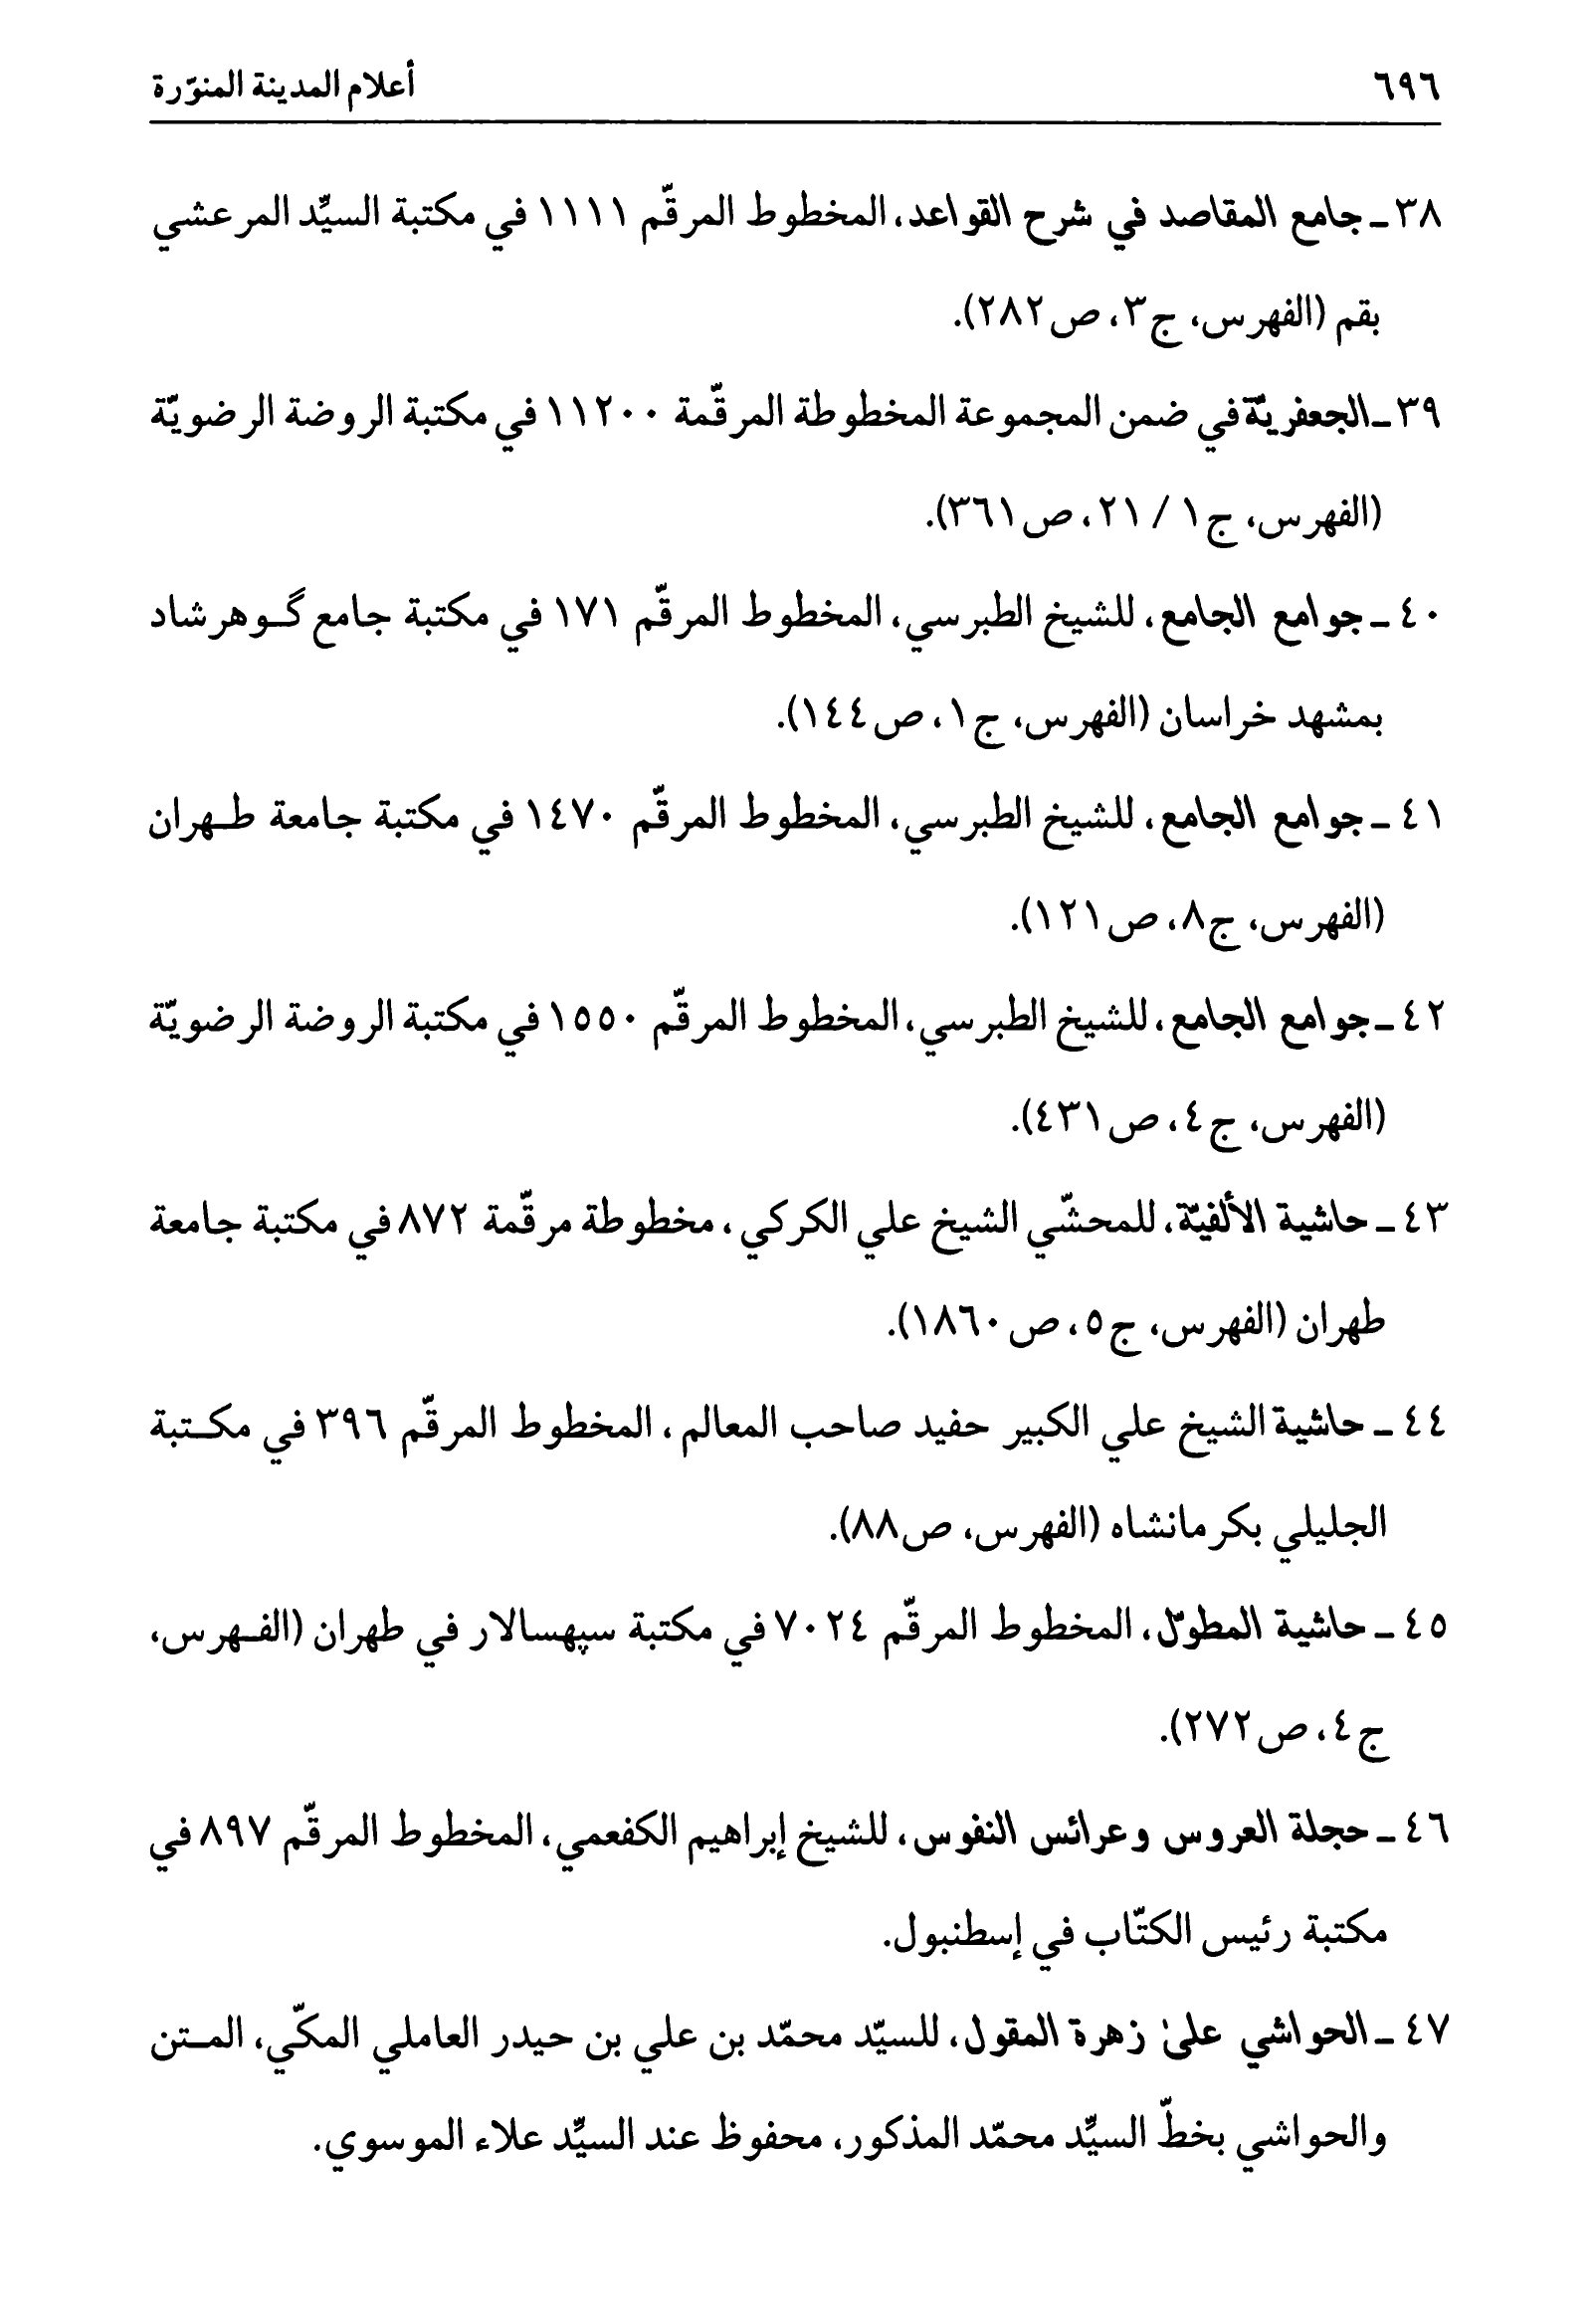 ٦٩٦ أعلام المدينة المنوّرة
٣٨ ـ جامع المقاصد في شرح القواعد، المخطوط المرقّم ١١١١ في مكتبة السيِّد المرعشي
بقم (الفهرس، ج٣، ص٢٨٢).
٣٩ ـ الجعفريّة في ضمن المجموعة المخطوطة المرقّمة ١١٢٠٠ في مكتبة الروضة الرضويّة
(الفهرس، ج١ / ٢١، ص٣٦١).
٤٠ ـ جوامع الجامع، للشيخ الطبرسي، المخطوط المرقّم ١٧١ في مكتبة جامع گـوهرشاد
بمشهد خراسان (الفهرس، ج١، ص١٤٤).
٤١ ـ جوامع الجامع، للشيخ الطبرسي، المخطوط المرقّم ١٤٧٠ في مكتبة جامعة طـهران
(الفهرس، ج٨، ص١٢١).
٤٢ ـ جوامع الجامع، للشيخ الطبرسي، المخطوط المرقّم ١٥٥٠ في مكتبة الروضة الرضويّة
(الفهرس، ج٤، ص٤٣١).
٤٣ ـ حاشية الألفيّة، للمحشّي الشيخ علي الكركي، مخطوطة مرقّمة ٨٧٢ في مكتبة جامعة
طهران (الفهرس، ج٥، ص١٨٦٠).
٤٤ ـ حاشية الشيخ علي الكبير حفيد صاحب المعالم، المخطوط المرقّم ٣٩٦ في مكـتبة
الجليلي بكرمانشاه (الفهرس، ص٨٨).
٤٥ ـ حاشية المطوّل، المخطوط المرقّم ٧٠٢٤ في مكتبة سپهسالار في طهران (الفـهرس،
ج٤، ص٢٧٢).
٤٦ ـ حجلة العروس وعرائس النفوس، للشيخ إبراهيم الكفعمي، المخطوط المرقّم ٨٩٧ في
مكتبة رئيس الكتّاب في إسطنبول.
٤٧ ـ الحواشي علىٰ زهرة المقول، للسيّد محمّد بن علي بن حيدر العاملي المكّي، المـتن
والحواشي بخطّ السيِّد محمّد المذكور، محفوظ عند السيِّد علاء الموسوي.